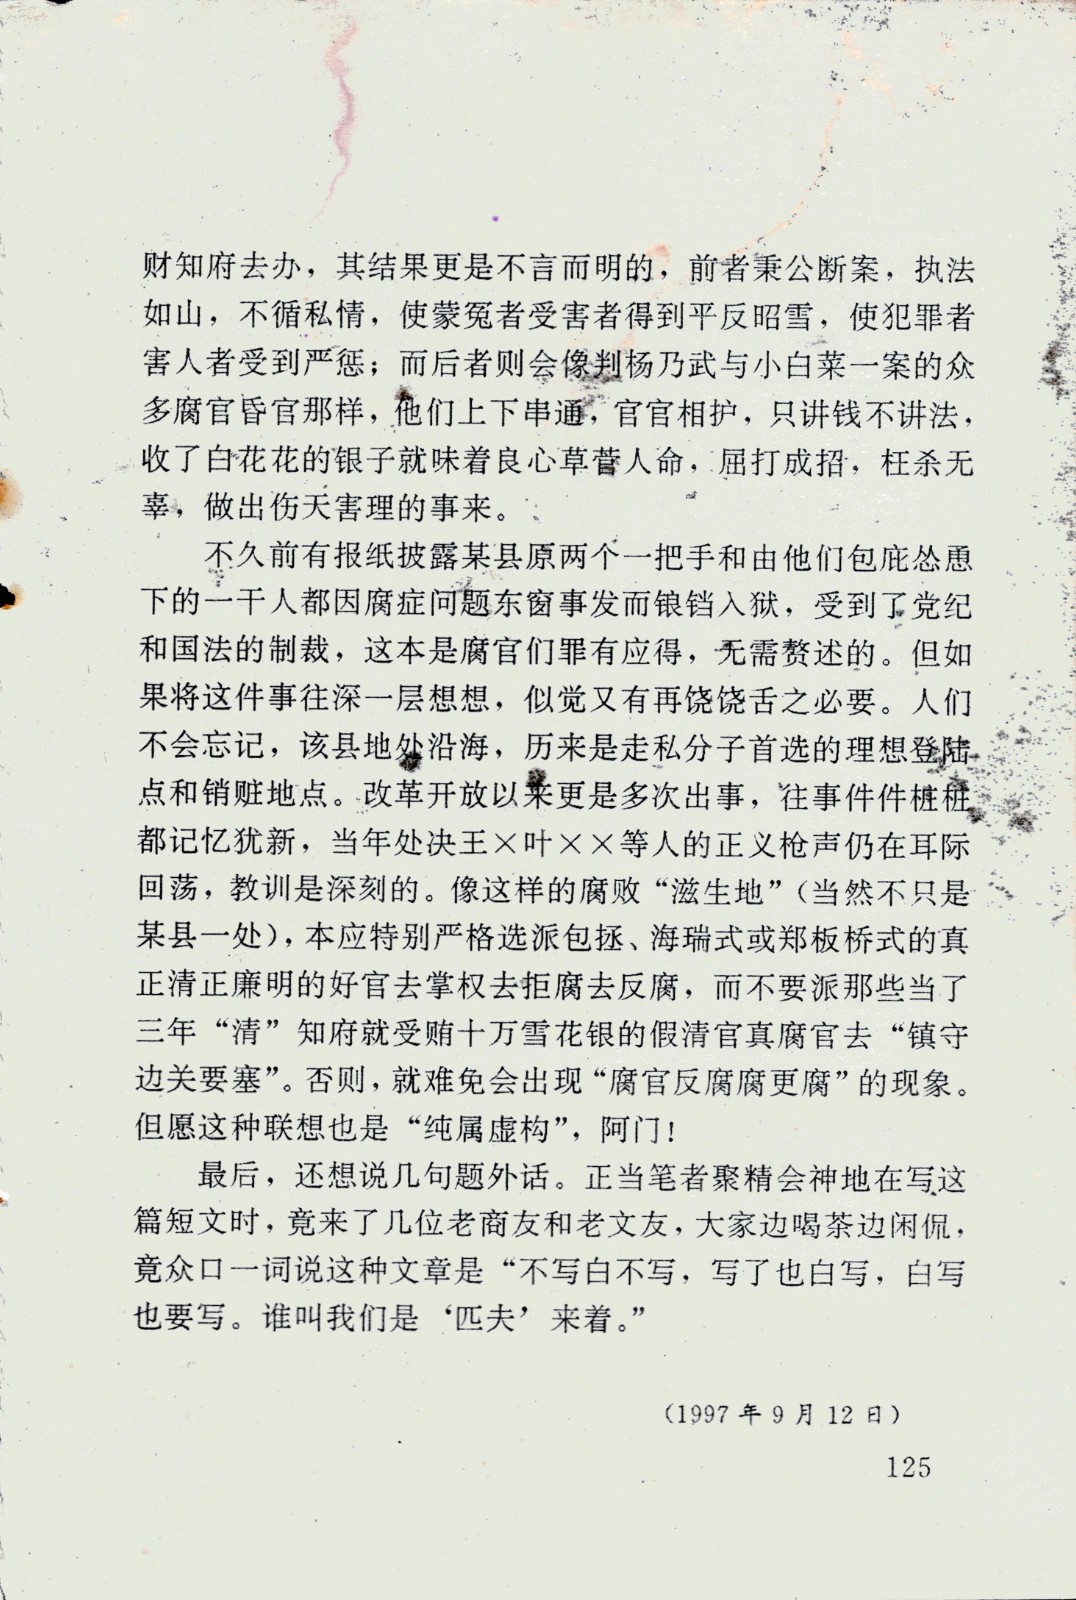 财知府去办，其结果更是不言而明的，前者秉公断案，执法
如山，不循私情，使蒙冤者受害者得到平反昭雪，使犯罪者
害人者受到严惩；而后者则会像判杨乃武与小白菜一案的众
多腐官昏官那样，他们上下串通，官官相护，只讲钱不讲法，
收了白花花的银子就味着良心草菅人命，屈打成招，枉杀无
辜，做出伤天害理的事来。
不久前有报纸披露某县原两个一把手和由他们包庇怂恿
下的一干人都因腐症问题东窗事发而锒铛入狱，受到了党纪
和国法的制裁，这本是腐官们罪有应得，无需赘述的。但如
果将这件事往深一层想想，似觉又有再饶饶舌之必要。人们
不会忘记，该县地处沿海，历来是走私分子首选的理想登陆
点和销赃地点。改革开放以来更是多次出事，往事件件桩桩
都记忆犹新，当年处决王×叶××等人的正义枪声仍在耳际
回荡，教训是深刻的。像这样的腐败“滋生地”（当然不只是
某县一处），本应特别严格选派包拯、海瑞式或郑板桥式的真
正清正廉明的好官去掌权去拒腐去反腐，而不要派那些当了
三年“清”知府就受贿十万雪花银的假清官真腐官去“镇守
边关要塞”。否则，就难免会出现“腐官反腐腐更腐”的现象。
但愿这种联想也是“纯属虚构”，阿门！
最后，还想说几句题外话。正当笔者聚精会神地在写这
篇短文时，竟来了几位老商友和老文友，大家边喝茶边闲侃，
竟众口一词说这种文章是“不写白不写，写了也白写，白写
也要写。谁叫我们是‘匹夫’来着。”
（1997年9月12日）
125